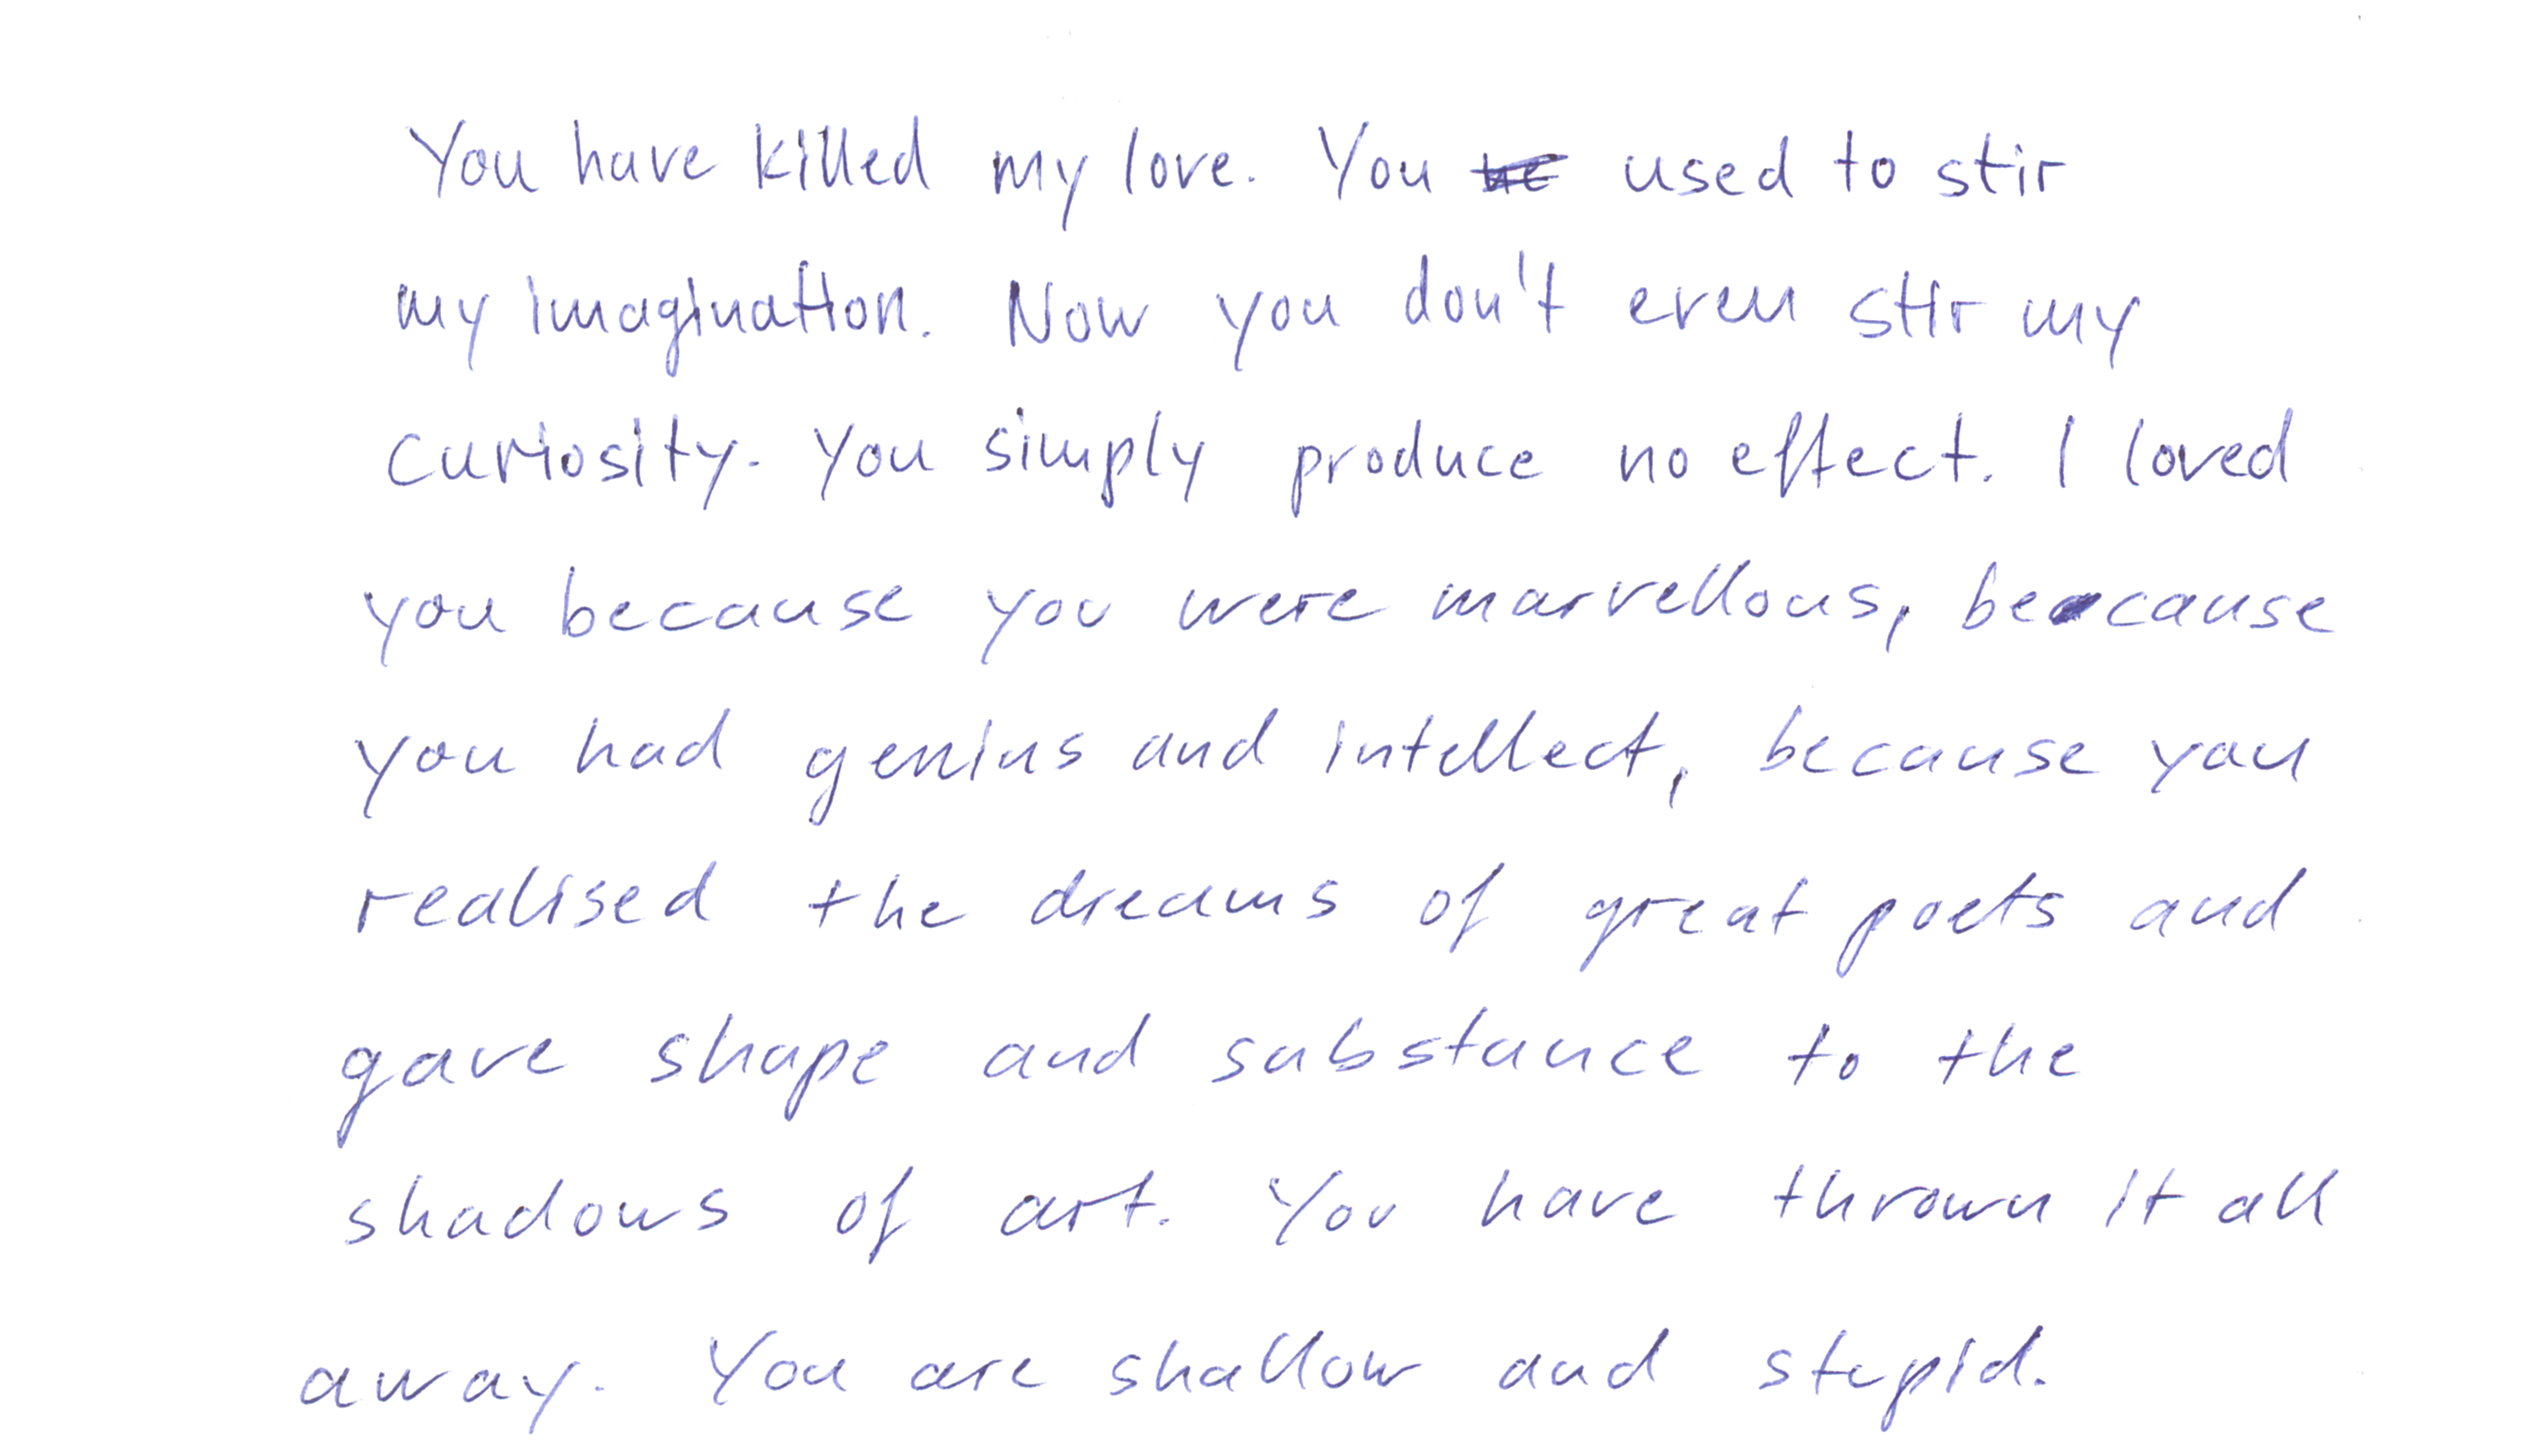 You have killed my love. You used to stir
my imagination. Now you don't even stir my
curiosity. You simply produce no effect. I loved
you because you were marvellous, because
you had genius and intellect, because you
realised the dreams of great poets and
gave shape and substance to the
shadows of art. You have thrown it all
away. You are shallow and stupid.